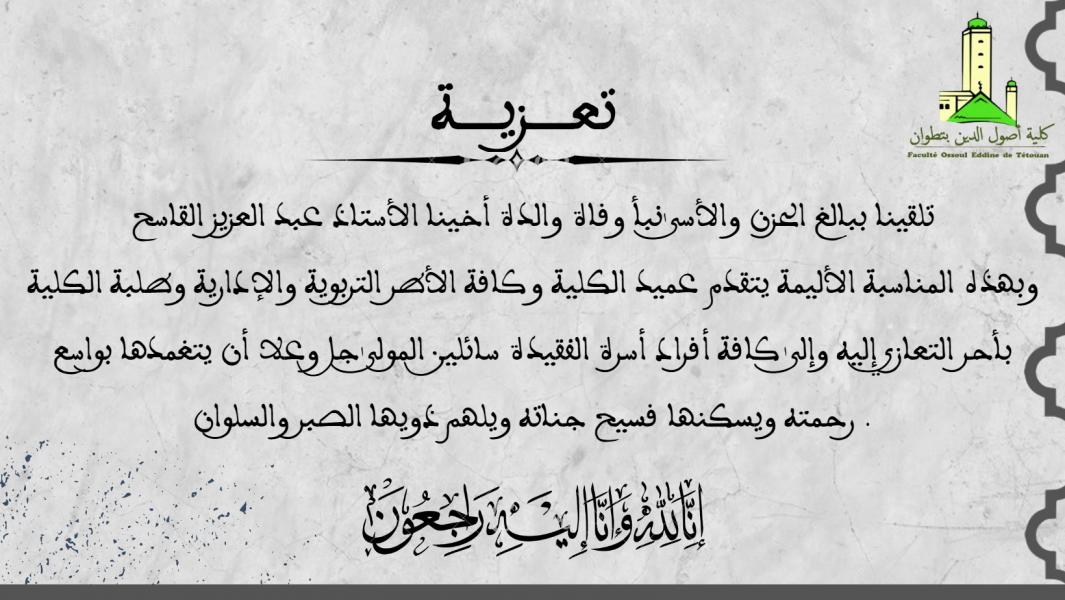 تعزية
كلية أصول الدين بتطوان
Faculté Ossoul Eddine de Tétouan
تلقينا ببالغ الحزن والأسى نبأ وفاة والدة أخينا الأستاذ عبد العزيز القاسح
وبهذه المناسبة الأليمة يتقدم عميد الكلية وكافة الأطر التربوية والإدارية وطلبة الكلية
بأحر التعازي إليه وإلى كافة أفراد أسرة الفقيدة سائلين المولى جل وعلا أن يتغمدها بواسع
رحمته ويسكنها فسيح جناته ويلهم ذويها الصبر والسلوان .
إِنَّا لِلَّهِ وَإِنَّا إِلَيْهِ رَاجِعُونَ